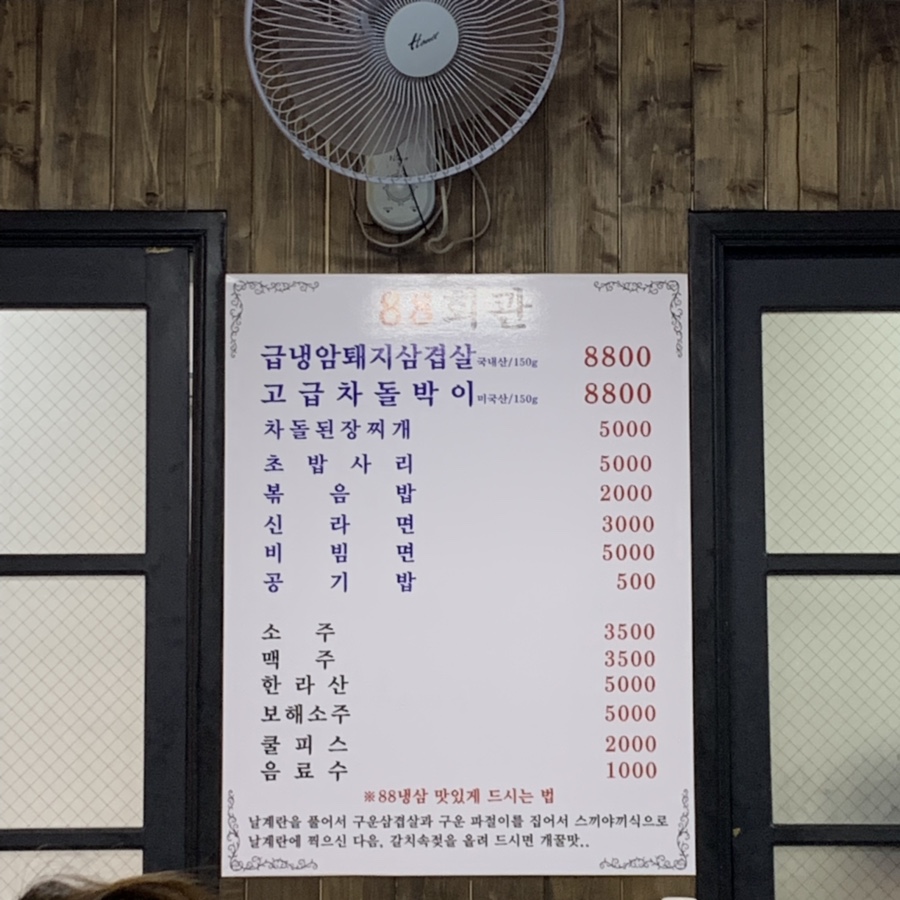 Home
88회관
급냉암퇘지삼겹살국내산/150g 8800
고급차돌박이미국산/150g 8800
차돌된장찌개 5000
초밥사리 5000
볶음밥 2000
신라면 3000
비빔면 5000
공기밥 500
소주 3500
맥주 3500
한라산 5000
보해소주 5000
쿨피스 2000
음료수 1000
※88냉삼 맛있게 드시는 법
날계란을 풀어서 구운삼겹살과 구운 파절이를 집어서 스끼야끼식으로
날계란에 찍으신 다음, 갈치속젖을 올려 드시면 개꿀맛..